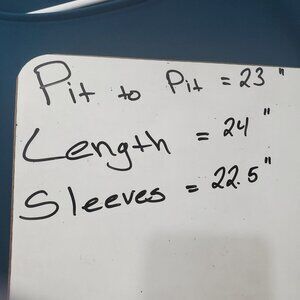 Pit to Pit = 23"
Length = 24"
Sleeves = 22.5"